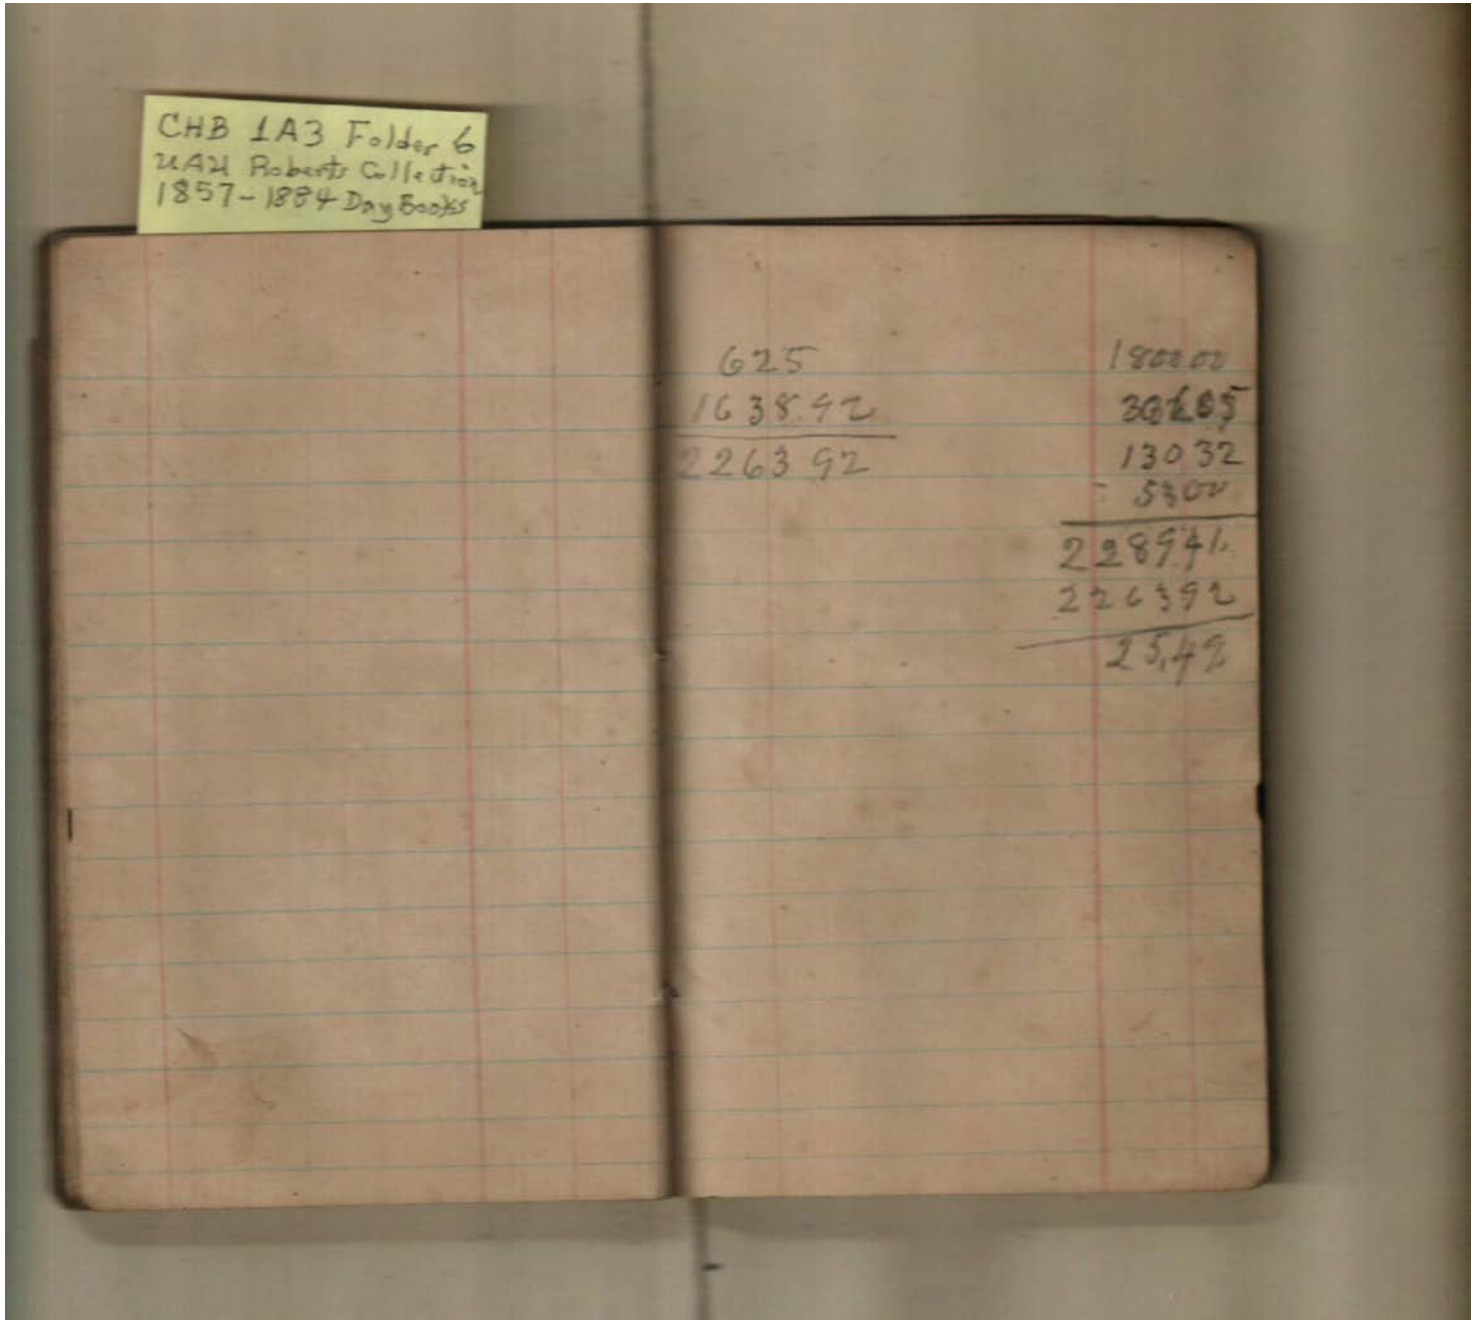 CHB 1A3 Folder 6
UAH Roberts Collection
1857-1884 Day Books
625
1638.92
2263 92
1800 00
130 32
53 00
2289 41
2263 92
25,49